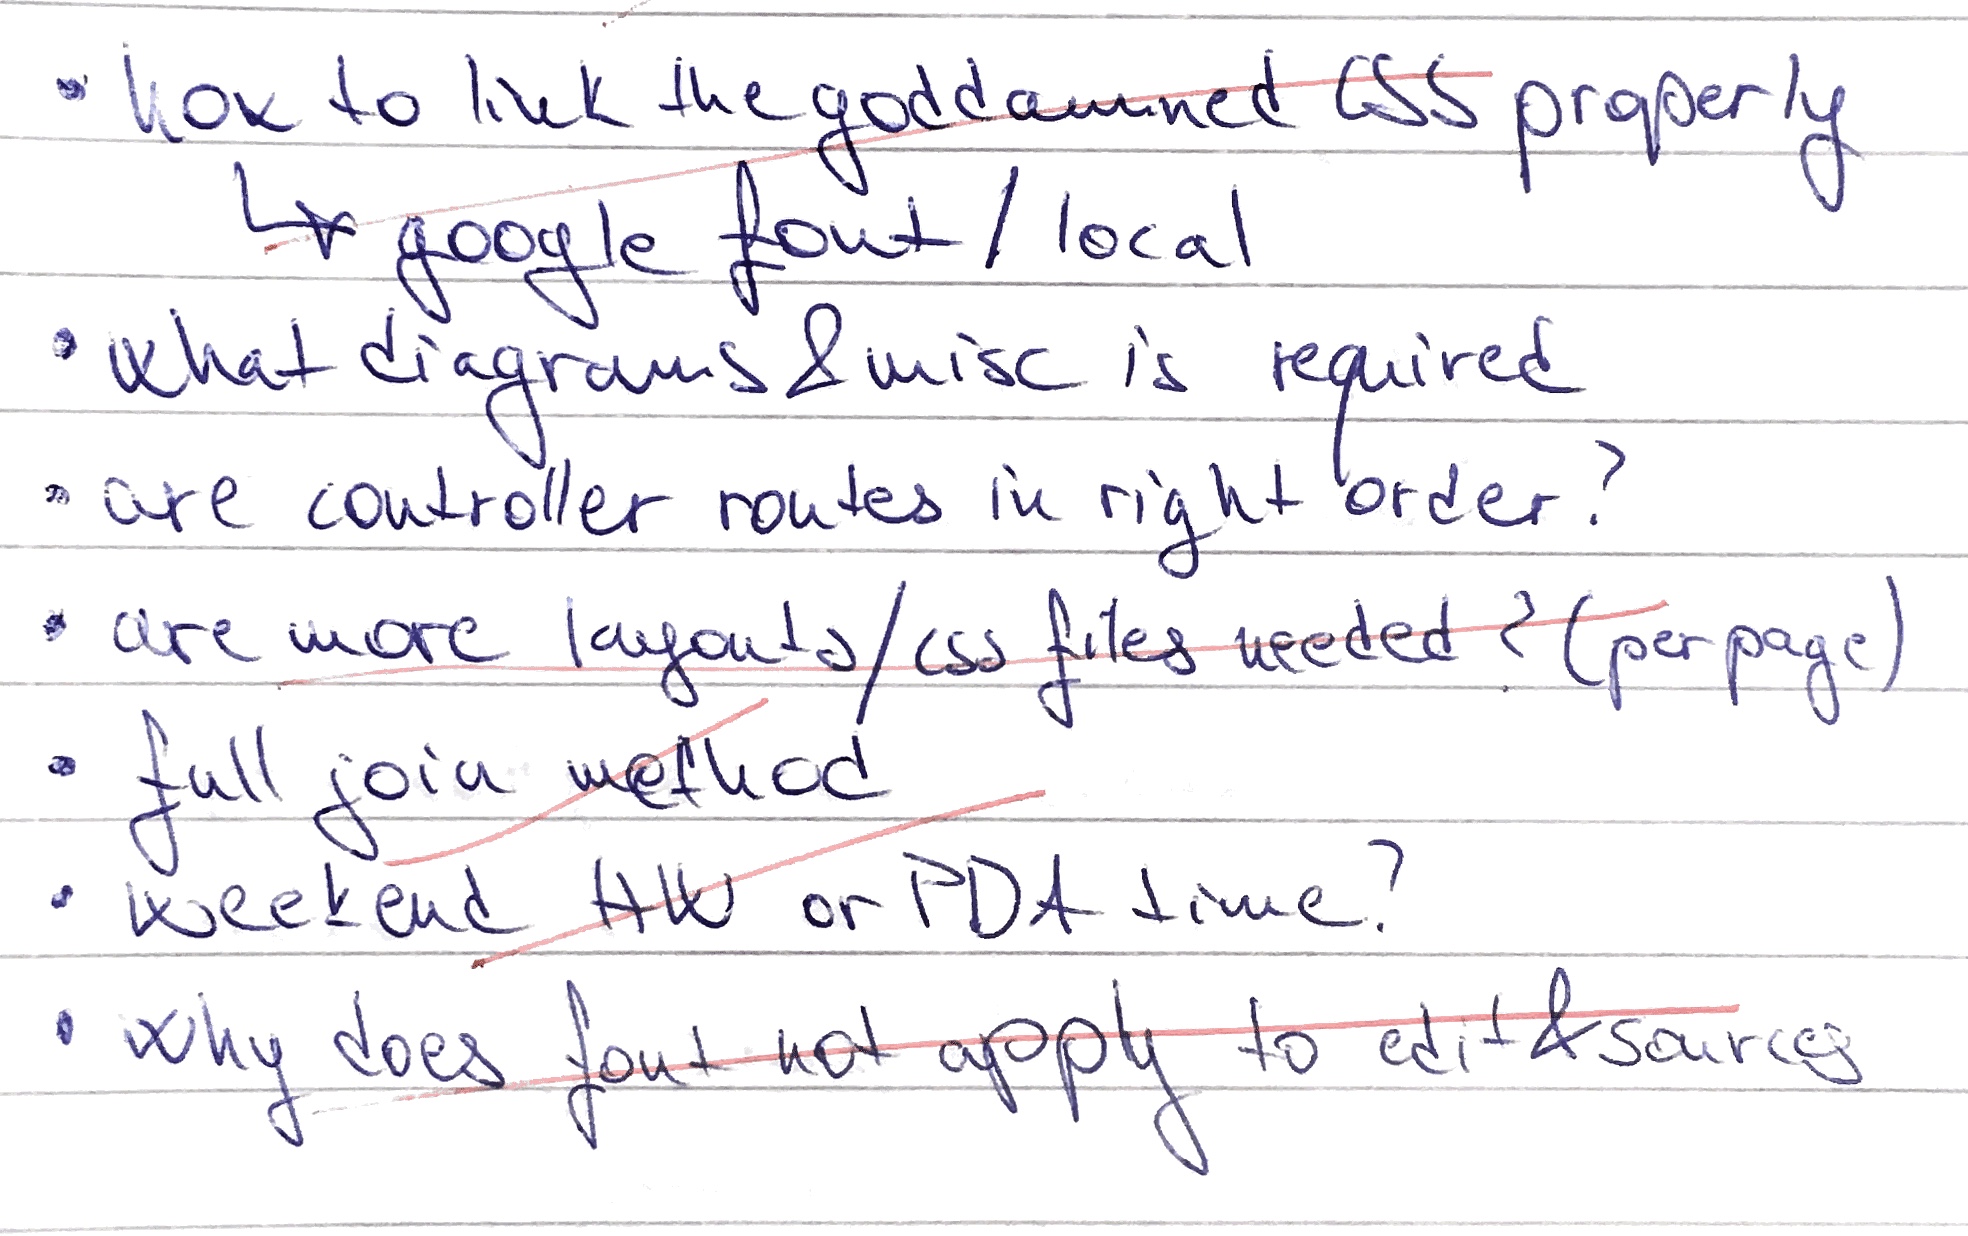 • how to link the goddamned CSS properly
↳ google font / local
• what diagrams & misc is required
• are controller routes in right order?
• are more layouts/css files needed? (per page)
• full join method
• weekend HW or PDA time?
• why does font not apply to edit & sources